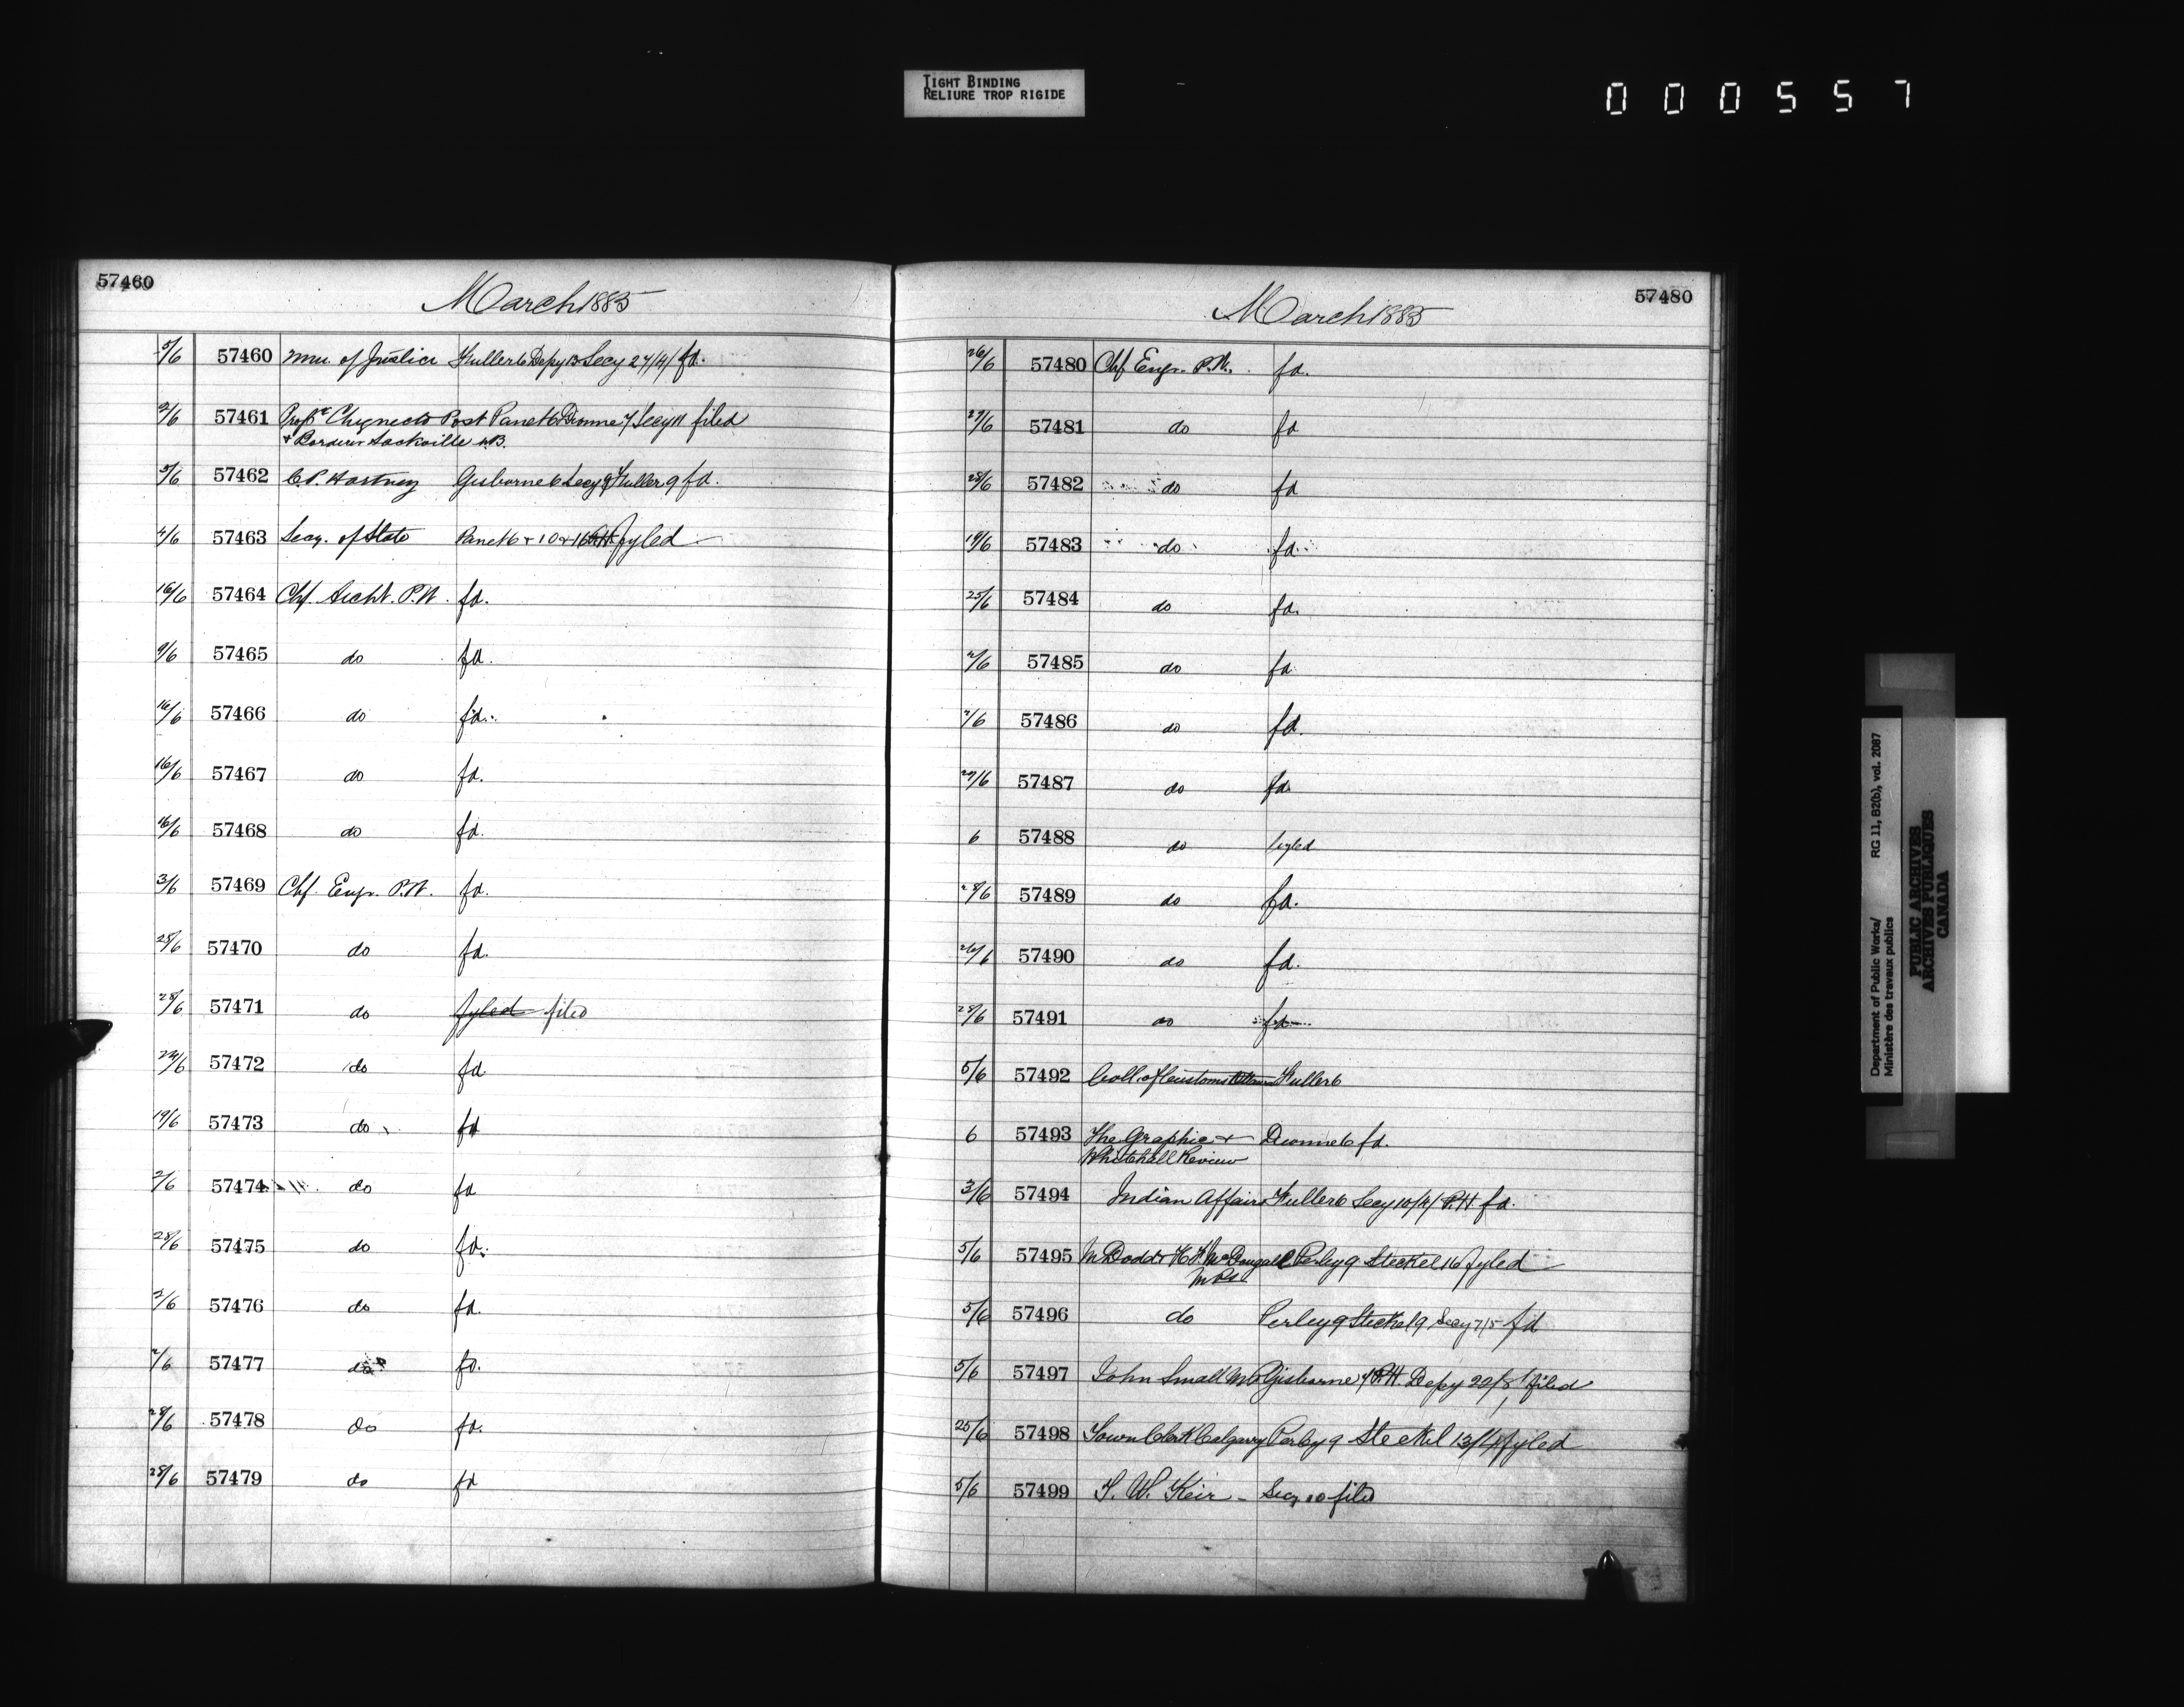 TIGHT BINDING
RELIURE TROP RIGIDE
000557
57460
March 1885
5/6 57460 Min. of Justice Fuller 6 Depy 13 Secy 27/4/ fd.
2/6 57461 Chignecto Post Panet 6 Dionne 7 Secy 11 filed
& Borderer Sackville N.B.
5/6 57462 C.P. Hartney Gisborne 6 Secy 9 Fuller 9 fd.
4/6 57463 Secy. of State Panet 6 & 10 & 16 P.H. fyled
16/6 57464 Chf. Archt. P.W. fd.
9/6 57465 do fd.
16/6 57466 do fd.
16/6 57467 do fd.
16/6 57468 do fd.
3/6 57469 Chf. Engr. P.W. fd.
28/6 57470 do fd.
28/6 57471 do fyled filed
24/6 57472 do fd
19/6 57473 do fd
2/6 57474 do fd
28/6 57475 do fd.
2/6 57476 do fd.
2/6 57477 do fd.
28/6 57478 do fd.
28/6 57479 do fd
57480
March 1885
26/6 57480 Chf Engr. P.W. fd.
27/6 57481 do fd
28/6 57482 do fd
19/6 57483 do fd.
25/6 57484 do fd.
2/6 57485 do fd
2/6 57486 do fd.
27/6 57487 do fd.
6 57488 do fyled
28/6 57489 do fd.
26/6 57490 do fd.
28/6 57491 do fd
5/6 57492 Coll. of Customs Ottawa Fuller 6
6 57493 The Graphic & Dionne 6 fd.
Whitehall Review
3/6 57494 Indian Affairs Fuller 6 Secy 10/4/ P.H fd.
5/6 57495 M Dodd & H F McDougall Perley 9 Steckel 16 fyled
MPs
5/6 57496 do Perley 9 Steckel 9 Secy 7/5 fd
5/6 57497 John Small MP Gisborne 7 P.H. Depy 22/8/ filed
25/6 57498 Town Clerk Calgary Perley 9 Steckel 13/4/ fyled
5/6 57499 S. W. Keir - Secy 10 filed
Department of Public Works/ RG 11, B2(b), vol. 2087
Ministère des travaux publics
PUBLIC ARCHIVES
ARCHIVES PUBLIQUES
CANADA